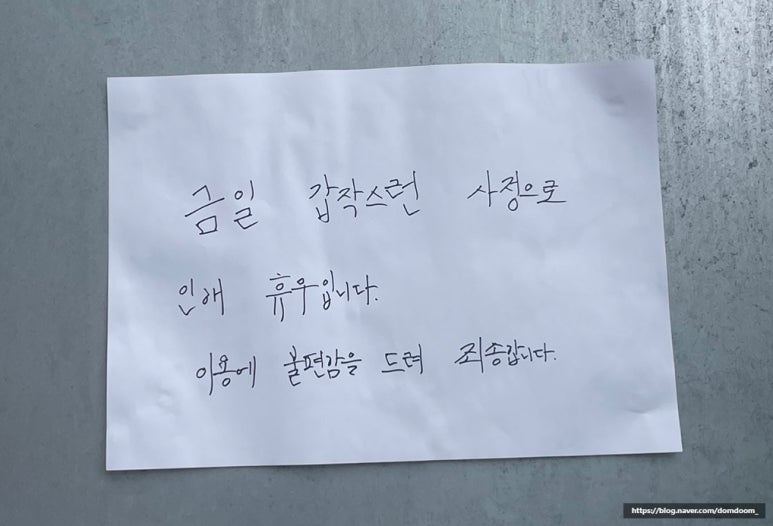 금일 갑작스런 사정으로
인해 휴무입니다.
이용에 불편감을 드려 죄송합니다.
https://blog.naver.com/domdoom_